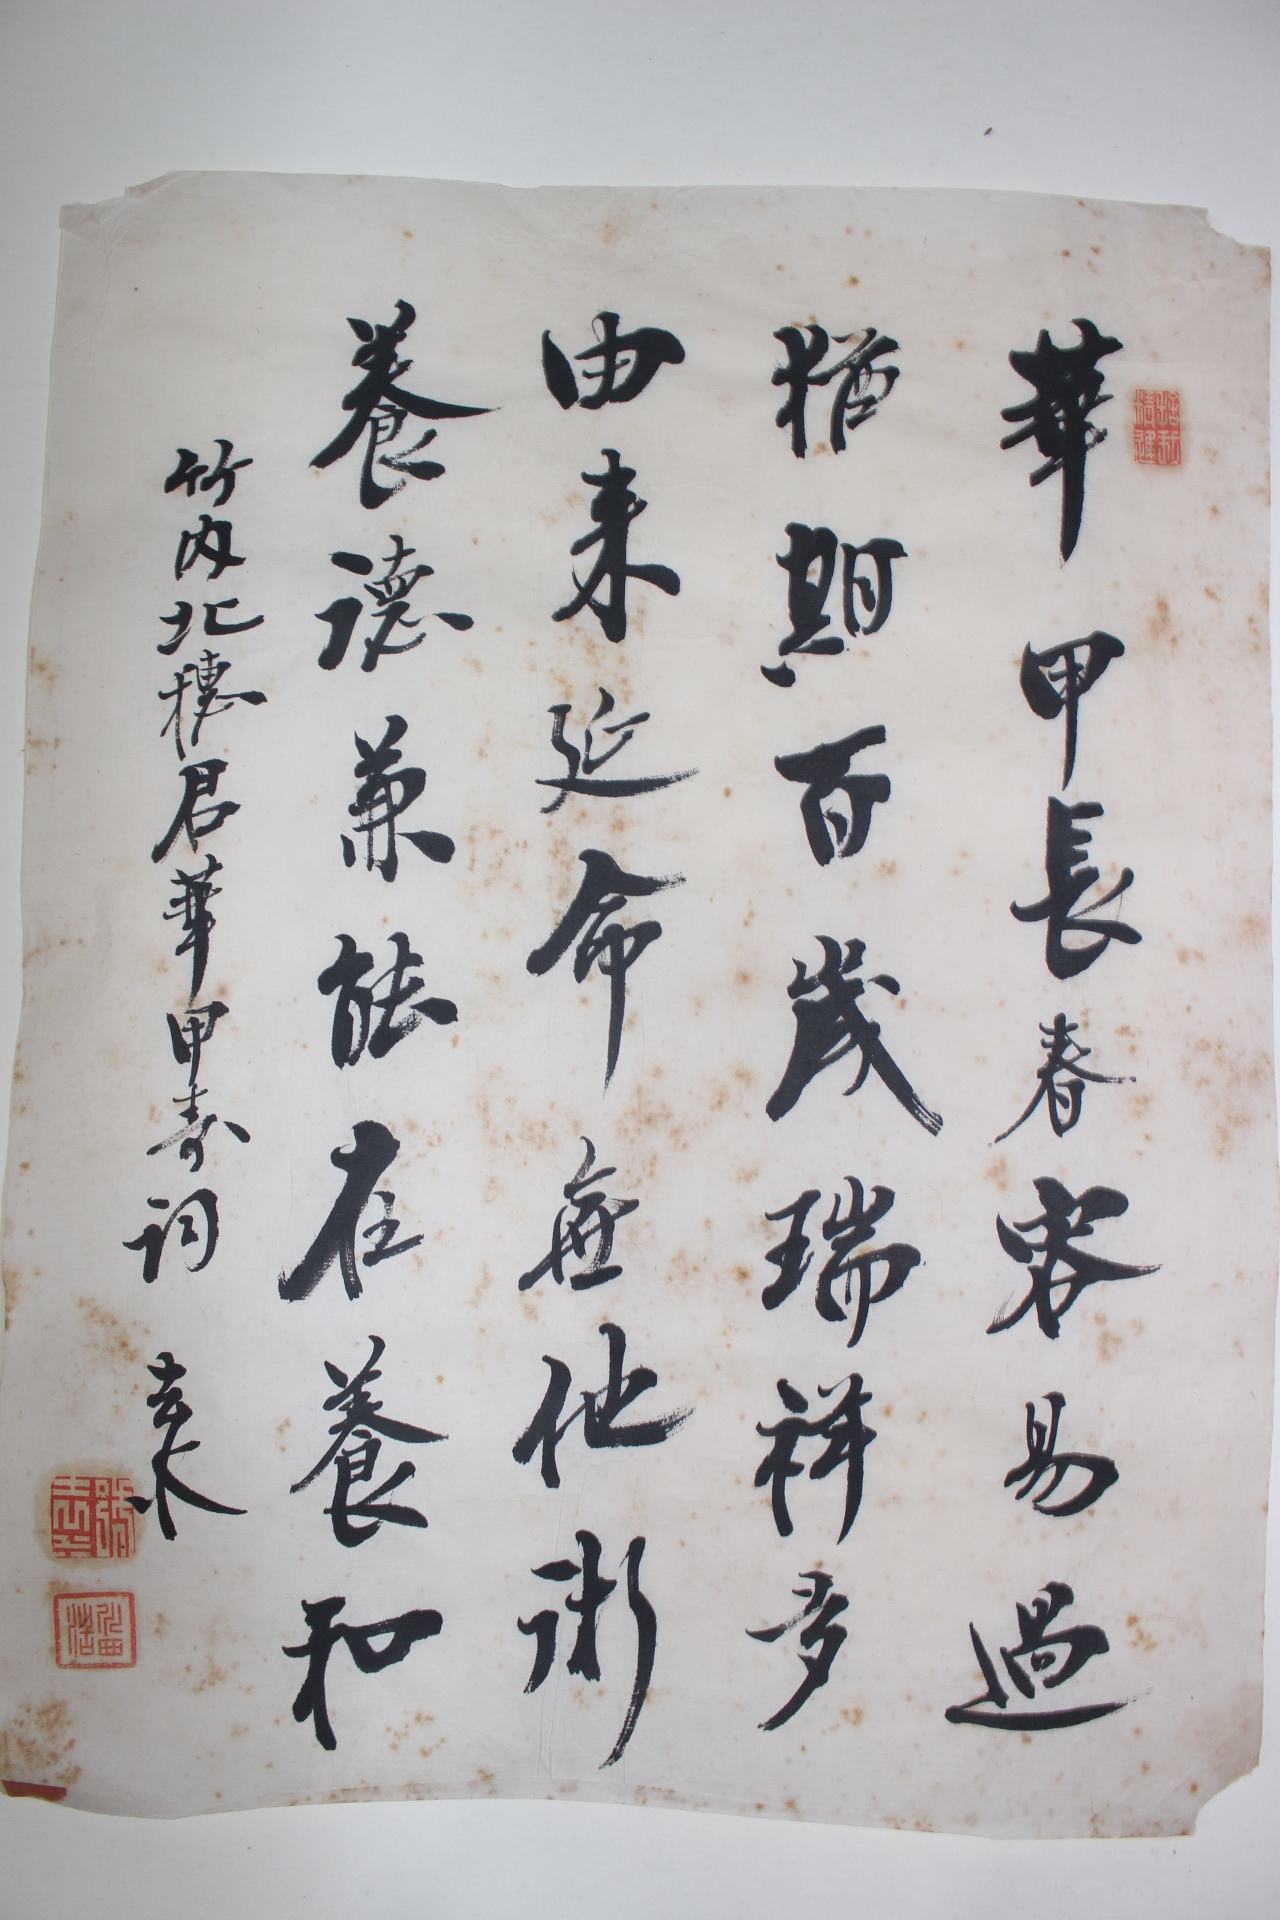 華甲長春容易過
猶期百歲瑞祥多
由来延命無他術
養德兼能在養和
竹内北穗君華甲壽詞